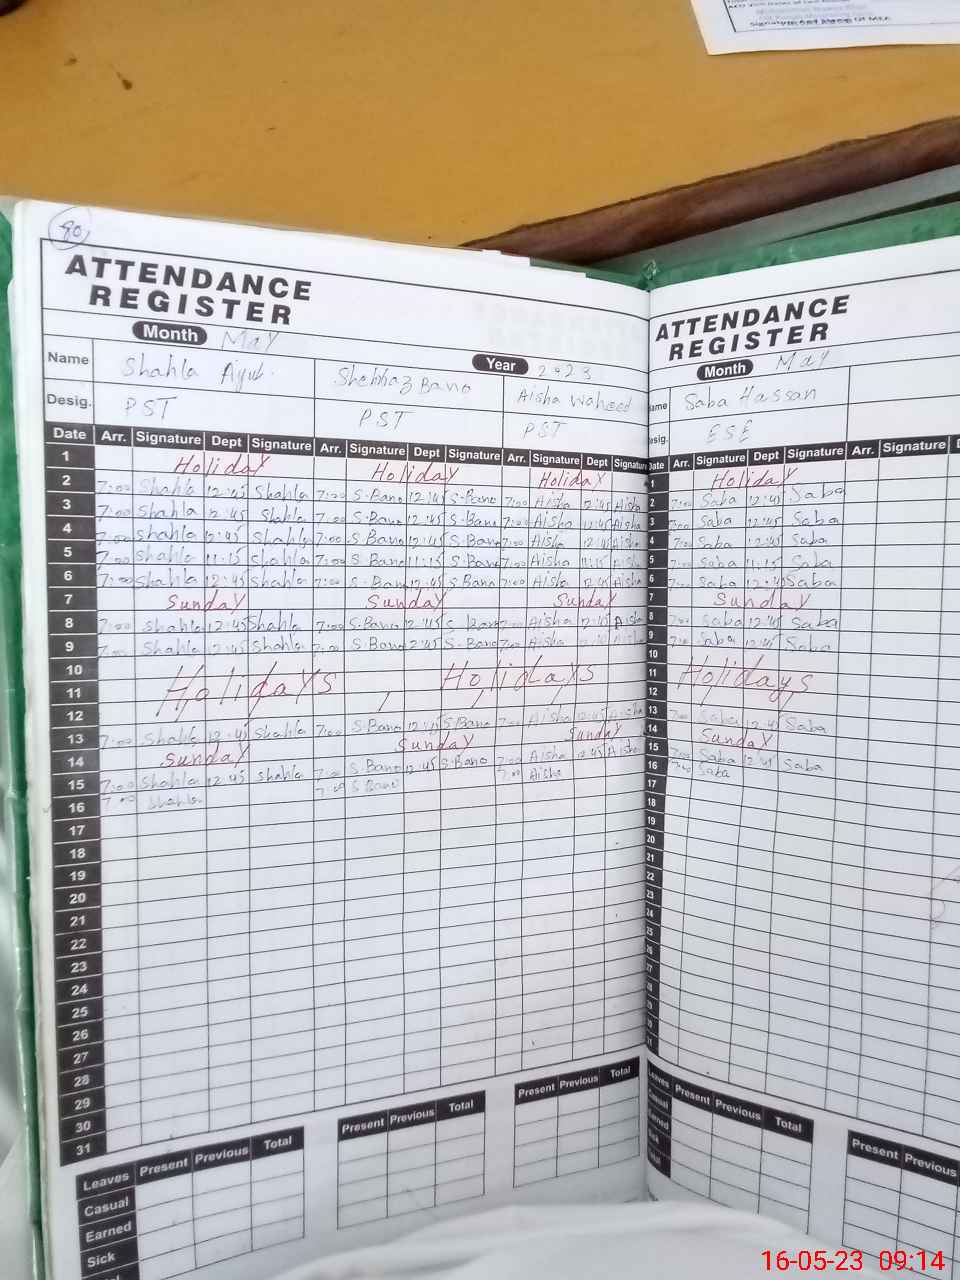 Signature And Stamp Of MEA
90
ATTENDANCE
REGISTER
Month May
Year 2023
Name Shahla Ayub. Shehhaz Bano Aisha Waheed
Desig. PST PST PST
Date Arr. Signature Dept Signature Arr. Signature Dept Signature Arr. Signature Dept Signature
1 Holiday Holiday Holiday
2 7:00 Shahla 12:45 Shahla 7:00 S.Bano 12:45 S.Bano 7:00 Aisha 12:45 Aisha
3 7:00 Shahla 12:45 Shahla 7:00 S.Bano 12:45 S.Bano 7:00 Aisha 12:45 Aisha
4 7:00 Shahla 12:45 Shahla 7:00 S.Bano 12:45 S.Bano 7:00 Aisha 12:45 Aisha
5 7:00 Shahla 11:15 Shahla 7:00 S.Bano 11:15 S.Bano 7:00 Aisha 11:15 Aisha
6 7:00 Shahla 12:45 Shahla 7:00 S.Bano 12:45 S.Bano 7:00 Aisha 12:45 Aisha
7 Sunday Sunday Sunday
8 7:00 Shahla 12:45 Shahla 7:00 S.Bano 12:45 S.Bano 7:00 Aisha 12:45 Aisha
9 7:00 Shahla 12:45 Shahla 7:00 S.Bano 12:45 S.Bano 7:00 Aisha Aisha
10
11 Holidays Holidays
12
13 7:00 Shahla 12:45 Shahla 7:00 S.Bano 12:45 S.Bano 7:00 Aisha 12:45 Aisha
14 Sunday Sunday Sunday
15 7:00 Shahla 12:45 Shahla 7:00 S.Bano 12:45 S.Bano 7:00 Aisha 12:45 Aisha
16 7:00 Shahla 7:00 S.Bano 7:00 Aisha
17
18
19
20
21
22
23
24
25
26
27
28
29
30
31
Leaves Present Previous Total Present Previous Total Present Previous Total
Casual
Earned
Sick
ATTENDANCE
REGISTER
Month May
Name Saba Hassan
Desig. ESE
Date Arr. Signature Dept Signature Arr. Signature
1 Holiday
2 7:00 Saba 12:45 Saba
3 7:00 Saba 12:45 Saba
4 7:00 Saba 12:45 Saba
5 7:00 Saba 11:15 Saba
6 7:00 Saba 12:45 Saba
7 Sunday
8 7:00 Saba 12:45 Saba
9 7:00 Saba 12:45 Saba
10
11 Holidays
12
13 7:00 Saba 12:45 Saba
14 Sunday
15 7:00 Saba 12:45 Saba
16 7:00 Saba
17
18
19
20
21
22
23
24
25
26
27
28
29
30
31
Leaves Present Previous Total Present Previous
Casual
Earned
Sick
Total
16-05-23 09:14